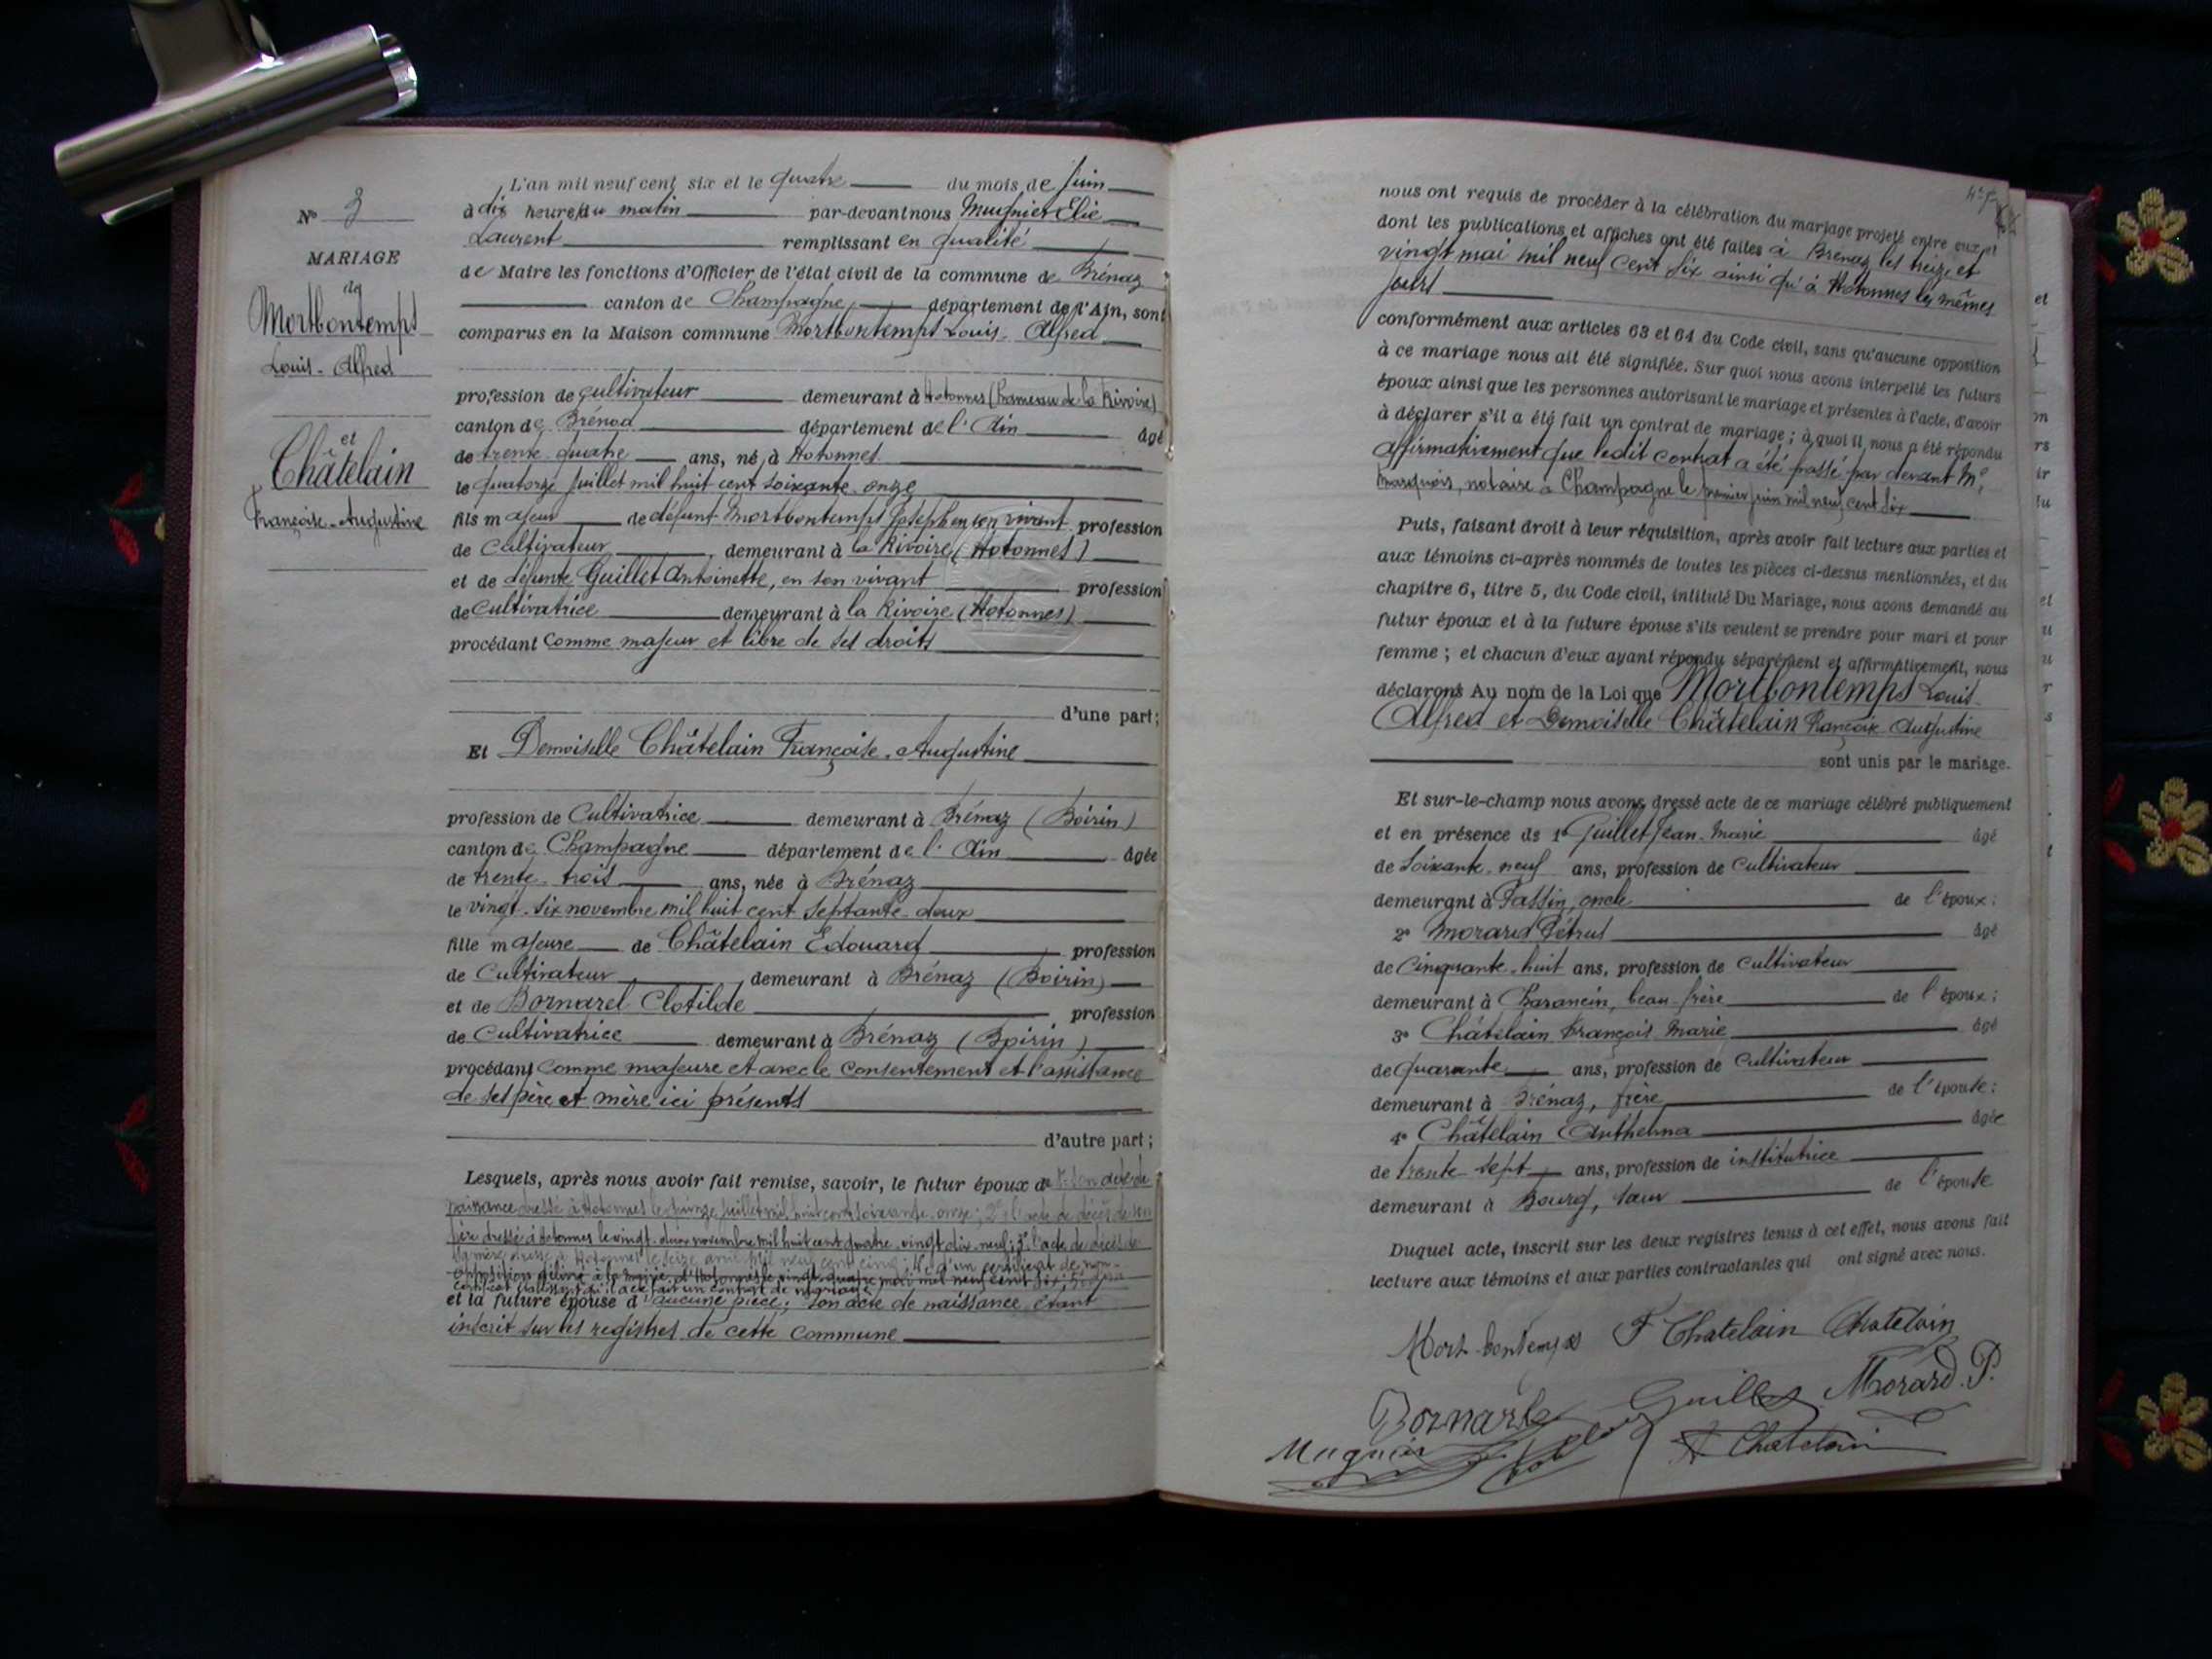 N° 3
MARIAGE
de
Mortbontemps
Louis-Alfred
et
Châtelain
Françoise-Augustine
L'an mil neuf cent six et le quatre du mois de Juin
à dix heures du matin par-devant nous Mugnier Elie
Laurent remplissant en qualité
de Maire les fonctions d'Officier de l'état civil de la commune de Brénaz
canton de Champagne, département de l'Ain, sont
comparus en la Maison commune Mortbontemps Louis-Alfred
profession de cultivateur demeurant à Hotonnes (hameau de la Rivoire)
canton de Brénod département de l'Ain âgé
de trente-quatre ans, né à Hotonnes
le quatorze juillet mil huit cent soixante-onze
fils majeur de défunt Mortbontemps Joseph en son vivant profession
de cultivateur, demeurant à la Rivoire (Hotonnes)
et de défunte Guillet Antoinette, en son vivant profession
de cultivatrice demeurant à la Rivoire (Hotonnes)
procédant comme majeur et libre de ses droits
d'une part;
Et Demoiselle Châtelain Françoise-Augustine
profession de Cultivatrice demeurant à Brénaz (Boirin)
canton de Champagne département de l'Ain âgée
de trente-trois ans, née à Brénaz
le vingt-six novembre mil huit cent septante-deux
fille majeure de Châtelain Edouard profession
de Cultivateur demeurant à Brénaz (Boirin)
et de Bornarel Clotilde profession
de Cultivatrice demeurant à Brénaz (Boirin)
procédant comme majeure et avec le consentement et l'assistance
de ses père et mère ici présents
d'autre part;
Lesquels, après nous avoir fait remise, savoir, le futur époux de 1° son acte de
naissance dressé à Hotonnes le quinze juillet mil huit cent soixante-onze; 2° l'acte de décès de son
père dressé à Hotonnes le vingt-deux novembre mil huit cent quatre-vingt dix-neuf; 3° l'acte de décès de
sa mère dressé à Hotonnes le seize avril mil neuf cent cinq; 4° d'un certificat de non-
opposition délivré à la mairie d'Hotonnes le vingt-quatre mai mil neuf cent six; 5° d'un
certificat qu'il a été fait un contrat de mariage
et la future épouse d'aucune pièce; son acte de naissance étant
inscrit sur les registres de cette commune
nous ont requis de procéder à la célébration du mariage projeté entre eux et
dont les publications et affiches ont été faites à Brénaz les treize et
vingt mai mil neuf cent six ainsi qu'à Hotonnes les mêmes
jours
conformément aux articles 63 et 64 du Code civil, sans qu'aucune opposition
à ce mariage nous ait été signifiée. Sur quoi nous avons interpellé les futurs
époux ainsi que les personnes autorisant le mariage et présentes à l'acte, d'avoir
à déclarer s'il a été fait un contrat de mariage; à quoi il nous a été répondu
affirmativement que ledit contrat a été passé par devant Me
notaire à Champagne le premier juin mil neuf cent six
Puis, faisant droit à leur réquisition, après avoir fait lecture aux parties et
aux témoins ci-après nommés de toutes les pièces ci-dessus mentionnées, et du
chapitre 6, titre 5, du Code civil, intitulé Du Mariage, nous avons demandé au
futur époux et à la future épouse s'ils veulent se prendre pour mari et pour
femme; et chacun d'eux ayant répondu séparément et affirmativement, nous
déclarons Au nom de la Loi que Mortbontemps Louis-
Alfred et Demoiselle Châtelain Françoise-Augustine
sont unis par le mariage.
Et sur-le-champ nous avons dressé acte de ce mariage célébré publiquement
et en présence de 1° Guillet Jean-Marie âgé
de soixante-neuf ans, profession de cultivateur
demeurant à Passin, oncle de l'époux;
2° Morard Pétrus âgé
de cinquante-huit ans, profession de cultivateur
demeurant à Charancin, beau-frère de l'époux;
3° Châtelain François-Marie âgé
de quarante ans, profession de cultivateur
demeurant à Brénaz, frère de l'épouse;
4° Châtelain Anthelma âgée
de trente-sept ans, profession de institutrice
demeurant à Bourg, sœur de l'épouse
Duquel acte, inscrit sur les deux registres tenus à cet effet, nous avons fait
lecture aux témoins et aux parties contractantes qui ont signé avec nous.
Mortbontemps F Chatelain Chatelain
Bornarel Guillet Morard. P.
Mugnier A Chatelain